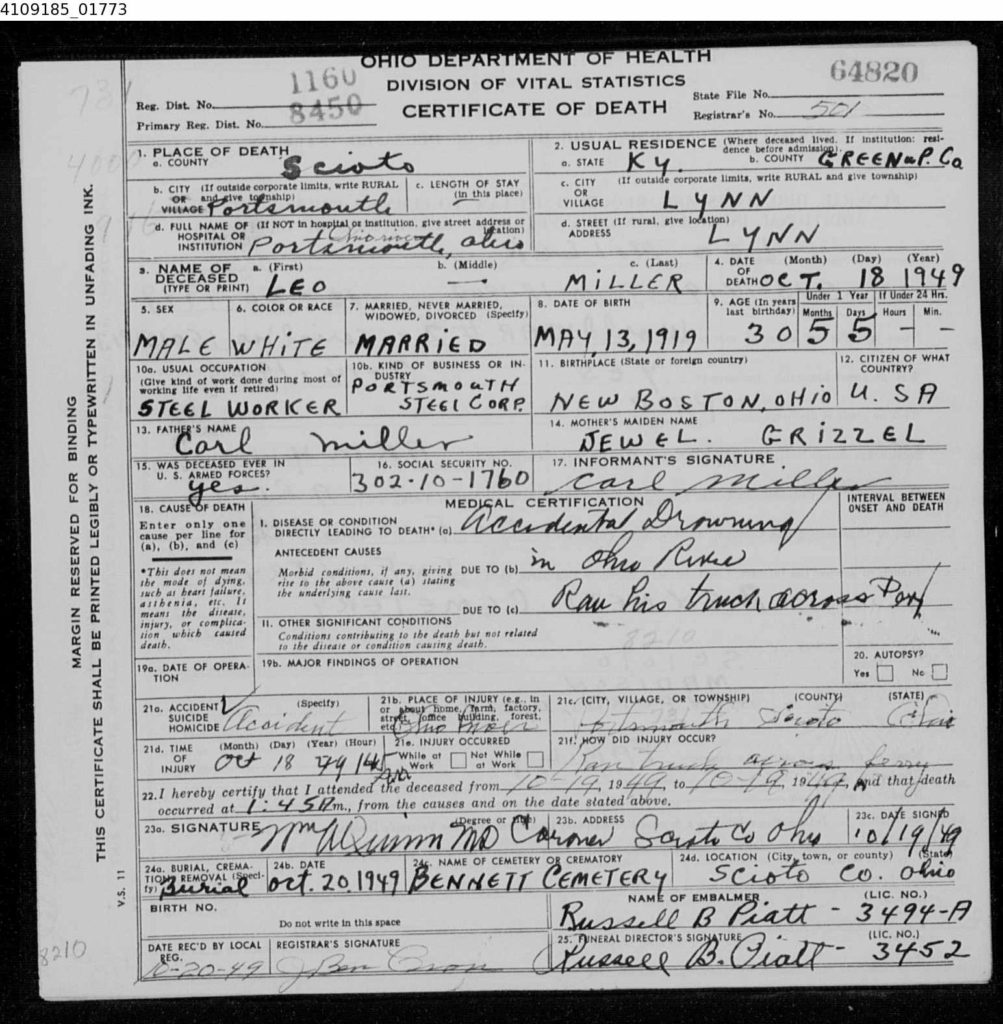 4109185_01773
OHIO DEPARTMENT OF HEALTH
DIVISION OF VITAL STATISTICS
CERTIFICATE OF DEATH
1160
8450
64820
Reg. Dist. No.
Primary Reg. Dist. No.
State File No.
Registrar's No. 501
MARGIN RESERVED FOR BINDING
THIS CERTIFICATE SHALL BE PRINTED LEGIBLY OR TYPEWRITTEN IN UNFADING INK.
V.S. 11
1. PLACE OF DEATH
a. COUNTY Scioto
2. USUAL RESIDENCE (Where deceased lived. If institution: residence before admission).
a. STATE KY. b. COUNTY GREENUP. Co
b. CITY (If outside corporate limits, write RURAL
OR and give township)
VILLAGE Portsmouth
c. LENGTH OF STAY
(in this place)
c. CITY (If outside corporate limits, write RURAL and give township)
OR
VILLAGE LYNN
d. FULL NAME OF (If NOT in hospital or institution, give street address or location)
HOSPITAL OR
INSTITUTION Portsmouth, Ohio
Ohio river
d. STREET (If rural, give location)
ADDRESS LYNN
3. NAME OF DECEASED
(TYPE OR PRINT)
a. (First) LEO
b. (Middle) —
c. (Last) MILLER
4. DATE OF DEATH (Month) (Day) (Year)
OCT. 18 1949
5. SEX
MALE
6. COLOR OR RACE
WHITE
7. MARRIED, NEVER MARRIED,
WIDOWED, DIVORCED (Specify)
MARRIED
8. DATE OF BIRTH
MAY 13, 1919
9. AGE (In years last birthday)
30
Under 1 Year
Months 5
Days 5
If Under 24 Hrs.
Hours –
Min. –
10a. USUAL OCCUPATION
(Give kind of work done during most of
working life even if retired)
STEEL WORKER
10b. KIND OF BUSINESS OR INDUSTRY
PORTSMOUTH
STEEL CORP.
11. BIRTHPLACE (State or foreign country)
NEW BOSTON, OHIO
12. CITIZEN OF WHAT COUNTRY?
U. SA
13. FATHER'S NAME
Carl Miller
14. MOTHER'S MAIDEN NAME
JEWEL. GRIZZEL
15. WAS DECEASED EVER IN
U. S. ARMED FORCES?
yes.
16. SOCIAL SECURITY NO.
302-10-1760
17. INFORMANT'S SIGNATURE
Carl Miller
18. CAUSE OF DEATH
Enter only one
cause per line for
(a), (b), and (c)
*This does not mean
the mode of dying,
such as heart failure,
asthenia, etc. It
means the disease,
injury, or complica-
tion which caused
death.
MEDICAL CERTIFICATION
INTERVAL BETWEEN
ONSET AND DEATH
I. DISEASE OR CONDITION
DIRECTLY LEADING TO DEATH* (a) Accidental Drowning
ANTECEDENT CAUSES
Morbid conditions, if any, giving
rise to the above cause (a) stating
the underlying cause last.
DUE TO (b) in Ohio River
DUE TO (c) Ran his truck across
II. OTHER SIGNIFICANT CONDITIONS
Conditions contributing to the death but not related
to the disease or condition causing death.
8210
19a. DATE OF OPERA-
TION
19b. MAJOR FINDINGS OF OPERATION
20. AUTOPSY?
Yes No
21a. ACCIDENT (Specify)
SUICIDE
HOMICIDE
Accident
21b. PLACE OF INJURY (e.g., in
or about home, farm, factory,
street, office building, forest,
etc.)
Ohio River
21c. (CITY, VILLAGE, OR TOWNSHIP) (COUNTY) (STATE)
Portsmouth Scioto Ohio
21d. TIME
OF
INJURY
(Month) (Day) (Year) (Hour)
Oct 18 49 145
21e. INJURY OCCURRED
While at Work
Not While at Work
21f. HOW DID INJURY OCCUR?
Ran truck across ferry
22. I hereby certify that I attended the deceased from 10-19, 1949, to 10-19, 1949, and that death
occurred at 1:45 P m., from the causes and on the date stated above.
23a. SIGNATURE (Degree or title)
Wm A Quinn MD Coroner
23b. ADDRESS
Scioto Co Ohio
23c. DATE SIGNED
10/19/49
24a. BURIAL, CREMA-
TION, REMOVAL (Speci-
fy)
Burial
24b. DATE
Oct. 20, 1949
24c. NAME OF CEMETERY OR CREMATORY
BENNETT CEMETERY
24d. LOCATION (City, town, or county) (State)
SCIOTO CO. Ohio
BIRTH NO.
Do not write in this space
NAME OF EMBALMER (LIC. NO.)
Russell B Piatt - 3494-A
DATE REC'D BY LOCAL
REG.
10-20-49
REGISTRAR'S SIGNATURE
25. FUNERAL DIRECTOR'S SIGNATURE (LIC. NO.)
Russell B. Piatt - 3452
8210